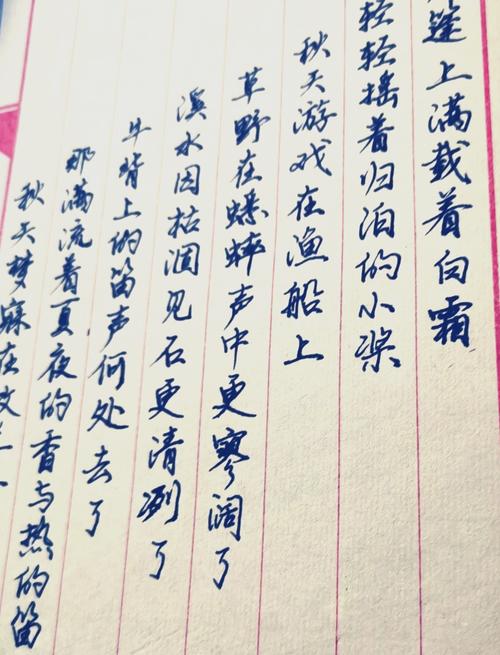 篷上满载着白霜
轻轻摇着归泊的小桨
秋天游戏在渔船上
草野在蟋蟀声中更寥阔了
溪水因枯涸见石更清冽了
牛背上的笛声何处去了
那满流着夏夜的香与热的笛
秋天梦寐在